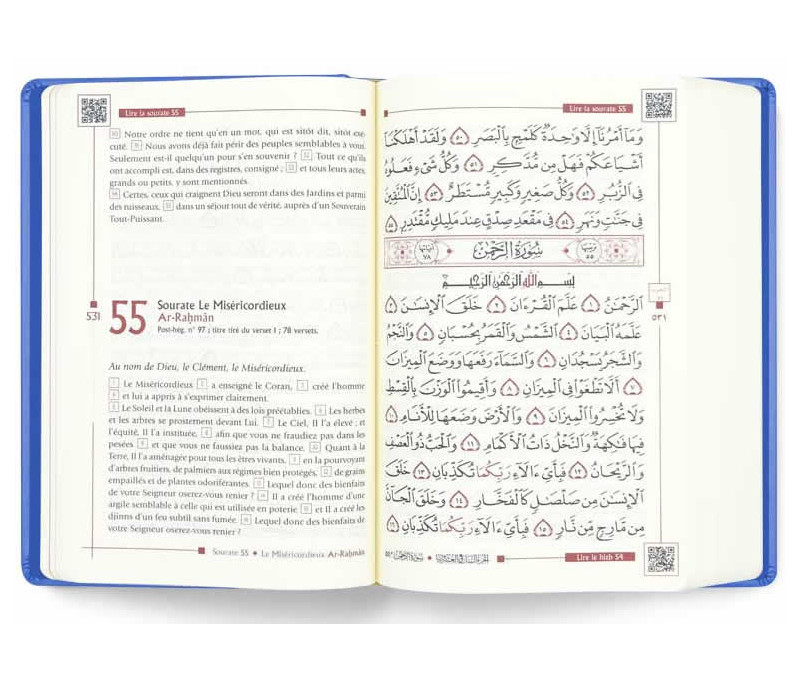 Lire la sourate 55
50 Notre ordre ne tient qu'en un mot, qui est sitôt dit, sitôt exé-
cuté. 51 Nous avons déjà fait périr des peuples semblables à vous.
Seulement est-il quelqu'un pour s'en souvenir ? 52 Tout ce qu'ils
ont accompli est, dans des registres, consigné ; 53 et tous leurs actes,
grands ou petits, y sont mentionnés.
54 Certes, ceux qui craignent Dieu seront dans des Jardins et parmi
des ruisseaux, 55 dans un séjour tout de vérité, auprès d'un Souverain
Tout-Puissant.
531
55
Sourate Le Miséricordieux
Ar-Raḥmân
Post-hég. n° 97 ; titre tiré du verset 1 ; 78 versets.
Au nom de Dieu, le Clément, le Miséricordieux.
1 Le Miséricordieux 2 a enseigné le Coran, 3 créé l'homme
4 et lui a appris à s'exprimer clairement.
5 Le Soleil et la Lune obéissent à des lois préétablies. 6 Les herbes
et les arbres se prosternent devant Lui. 7 Le Ciel, Il l'a élevé ; et
l'équité, Il l'a instituée, 8 afin que vous ne fraudiez pas dans les
pesées, 9 et que vous ne faussiez pas la balance. 10 Quant à la
Terre, Il l'a aménagée pour tous les êtres vivants, 11 en la pourvoyant
d'arbres fruitiers, de palmiers aux régimes bien protégés, 12 de grains
empaillés et de plantes odoriférantes. 13 Lequel donc des bienfaits
de votre Seigneur oserez-vous renier ? 14 Il a créé l'homme d'une
argile semblable à celle qui est utilisée en poterie 15 et Il a créé les
djinns d'un feu subtil sans fumée. 16 Lequel donc des bienfaits de
votre Seigneur oserez-vous renier ?
Sourate 55 • Le Miséricordieux Ar-Raḥmân
Lire la sourate 55
وَمَآ أَمْرُنَآ إِلَّا وَٰحِدَةٌ كَلَمْحٍۭ بِٱلْبَصَرِ ٥٠ وَلَقَدْ أَهْلَكْنَآ
أَشْيَاعَكُمْ فَهَلْ مِن مُّدَّكِرٍ ٥١ وَكُلُّ شَىْءٍ فَعَلُوهُ
فِى ٱلزُّبُرِ ٥٢ وَكُلُّ صَغِيرٍ وَكَبِيرٍ مُّسْتَطَرٌ ٥٣ إِنَّ ٱلْمُتَّقِينَ
فِى جَنَّٰتٍ وَنَهَرٍ ٥٤ فِى مَقْعَدِ صِدْقٍ عِندَ مَلِيكٍ مُّقْتَدِرٍۭ ٥٥
ترتيبها ٥٥ سُورَةُ ٱلرَّحْمَٰن آياتها ٧٨
بِسْمِ ٱللَّهِ ٱلرَّحْمَٰنِ ٱلرَّحِيمِ
ٱلرَّحْمَٰنُ ١ عَلَّمَ ٱلْقُرْءَانَ ٢ خَلَقَ ٱلْإِنسَٰنَ ٣
عَلَّمَهُ ٱلْبَيَانَ ٤ ٱلشَّمْسُ وَٱلْقَمَرُ بِحُسْبَانٍ ٥ وَٱلنَّجْمُ
وَٱلشَّجَرُ يَسْجُدَانِ ٦ وَٱلسَّمَآءَ رَفَعَهَا وَوَضَعَ ٱلْمِيزَانَ
٧ أَلَّا تَطْغَوْا۟ فِى ٱلْمِيزَانِ ٨ وَأَقِيمُوا۟ ٱلْوَزْنَ بِٱلْقِسْطِ
وَلَا تُخْسِرُوا۟ ٱلْمِيزَانَ ٩ وَٱلْأَرْضَ وَضَعَهَا لِلْأَنَامِ ١٠
فِيهَا فَٰكِهَةٌ وَٱلنَّخْلُ ذَاتُ ٱلْأَكْمَامِ ١١ وَٱلْحَبُّ ذُو ٱلْعَصْفِ
وَٱلرَّيْحَانُ ١٢ فَبِأَىِّ ءَالَآءِ رَبِّكُمَا تُكَذِّبَانِ ١٣ خَلَقَ
ٱلْإِنسَٰنَ مِن صَلْصَٰلٍ كَٱلْفَخَّارِ ١٤ وَخَلَقَ ٱلْجَآنَّ
مِن مَّارِجٍ مِّن نَّارٍ ١٥ فَبِأَىِّ ءَالَآءِ رَبِّكُمَا تُكَذِّبَانِ ١٦
٥٣١
Lire le hizb 54